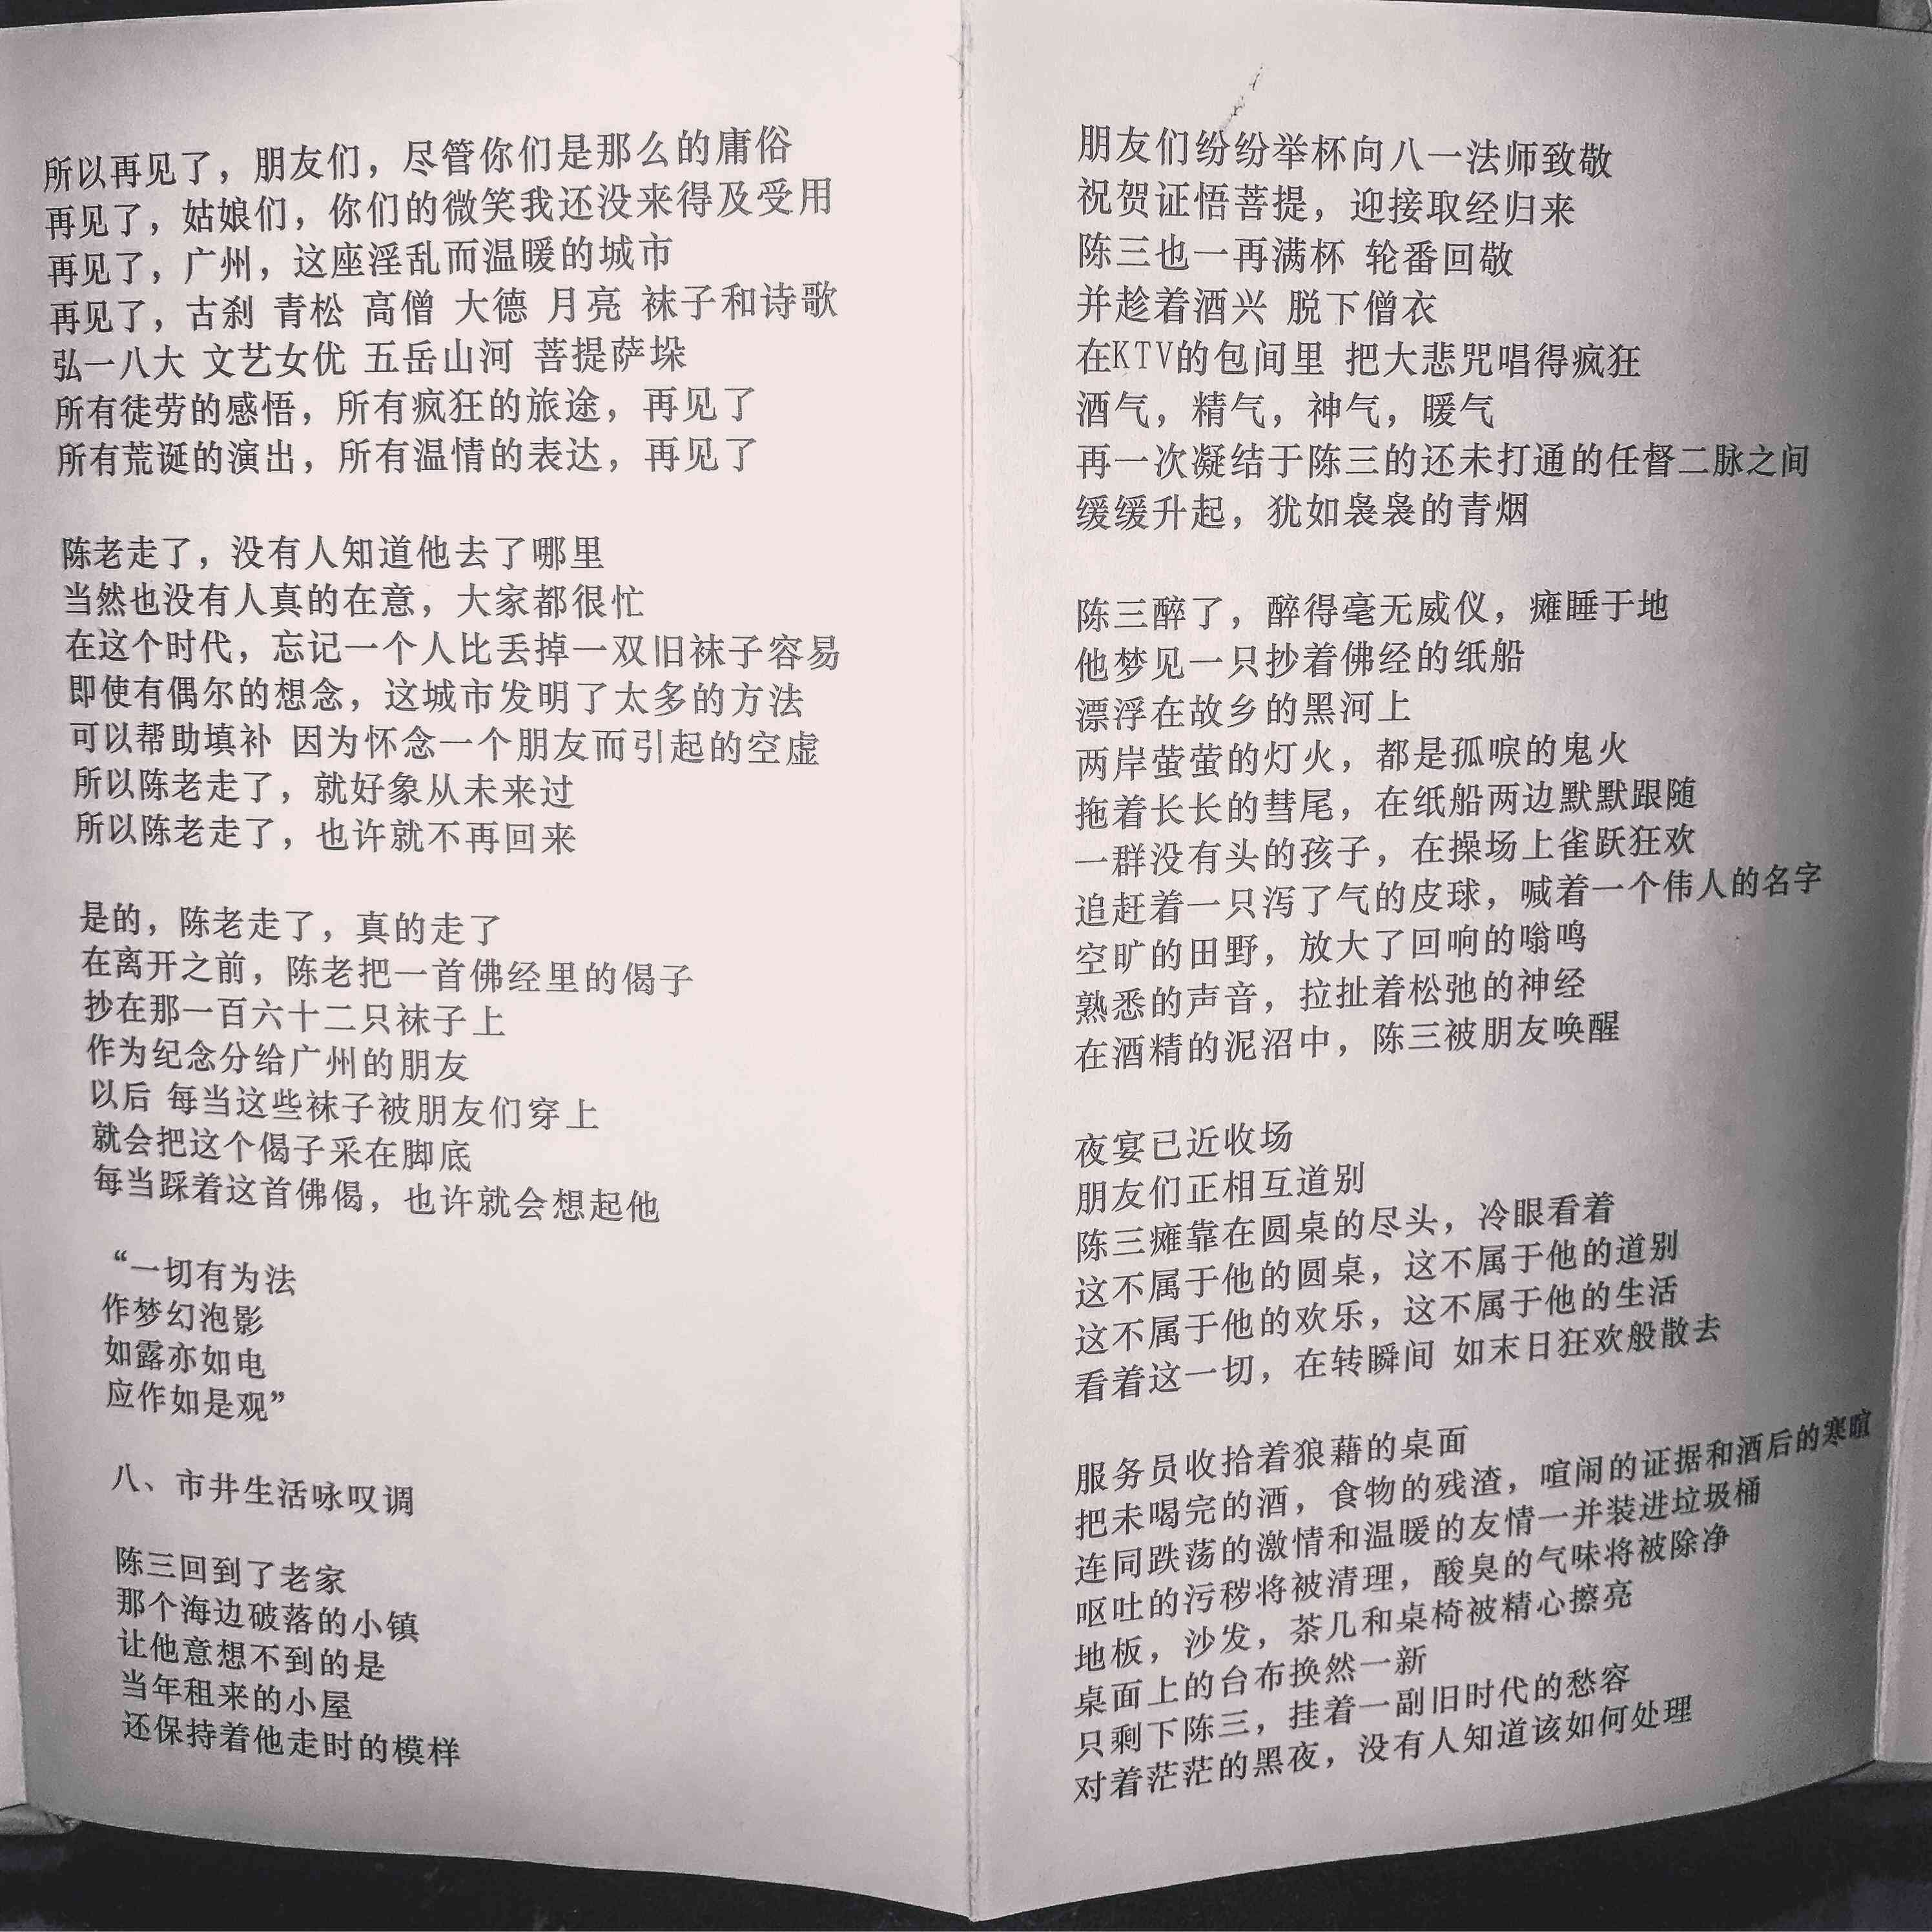 所以再见了，朋友们，尽管你们是那么的庸俗
再见了，姑娘们，你们的微笑我还没来得及受用
再见了，广州，这座淫乱而温暖的城市
再见了，古刹 青松 高僧 大德 月亮 袜子和诗歌
弘一八大 文艺女优 五岳山河 菩提萨垛
所有徒劳的感悟，所有疯狂的旅途，再见了
所有荒诞的演出，所有温情的表达，再见了
陈老走了，没有人知道他去了哪里
当然也没有人真的在意，大家都很忙
在这个时代，忘记一个人比丢掉一双旧袜子容易
即使有偶尔的想念，这城市发明了太多的方法
可以帮助填补 因为怀念一个朋友而引起的空虚
所以陈老走了，就好象从未来过
所以陈老走了，也许就不再回来
是的，陈老走了，真的走了
在离开之前，陈老把一首佛经里的偈子
抄在那一百六十二只袜子上
作为纪念分给广州的朋友
以后 每当这些袜子被朋友们穿上
就会把这个偈子采在脚底
每当踩着这首佛偈，也许就会想起他
“一切有为法
作梦幻泡影
如露亦如电
应作如是观”
八、市井生活咏叹调
陈三回到了老家
那个海边破落的小镇
让他意想不到的是
当年租来的小屋
还保持着他走时的模样
朋友们纷纷举杯向八一法师致敬
祝贺证悟菩提，迎接取经归来
陈三也一再满杯 轮番回敬
并趁着酒兴 脱下僧衣
在KTV的包间里 把大悲咒唱得疯狂
酒气，精气，神气，暖气
再一次凝结于陈三的还未打通的任督二脉之间
缓缓升起，犹如袅袅的青烟
陈三醉了，醉得毫无威仪，瘫睡于地
他梦见一只抄着佛经的纸船
漂浮在故乡的黑河上
两岸萤萤的灯火，都是孤唳的鬼火
拖着长长的彗尾，在纸船两边默默跟随
一群没有头的孩子，在操场上雀跃狂欢
追赶着一只泻了气的皮球，喊着一个伟人的名字
空旷的田野，放大了回响的嗡鸣
熟悉的声音，拉扯着松弛的神经
在酒精的泥沼中，陈三被朋友唤醒
夜宴已近收场
朋友们正相互道别
陈三瘫靠在圆桌的尽头，冷眼看着
这不属于他的圆桌，这不属于他的道别
这不属于他的欢乐，这不属于他的生活
看着这一切，在转瞬间 如末日狂欢般散去
服务员收拾着狼藉的桌面
把未喝完的酒，食物的残渣，喧闹的证据和酒后的寒暄
连同跌荡的激情和温暖的友情一并装进垃圾桶
呕吐的污秽将被清理，酸臭的气味将被除净
地板，沙发，茶几和桌椅被精心擦亮
桌面上的台布换然一新
只剩下陈三，挂着一副旧时代的愁容
对着茫茫的黑夜，没有人知道该如何处理